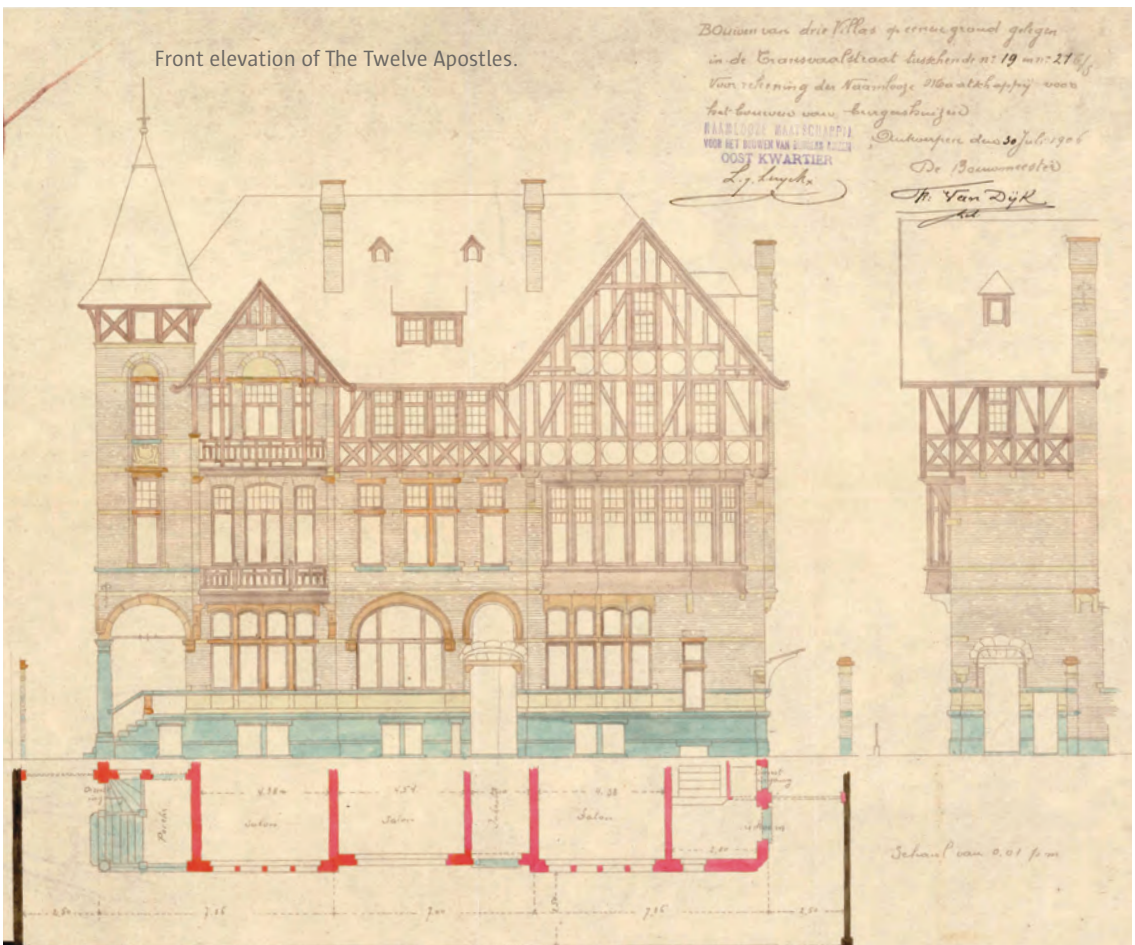 Front elevation of The Twelve Apostles.
Bouwen van drie Villas op eenen grond gelegen
in de Transvaalstraat tusschen de nrs 19 en nr 21
Voor rekening der Naamlooze Maatschappij voor
het bouwen van burgershuizen
NAAMLOOZE MAATSCHAPPIJ
VOOR HET BOUWEN VAN
OOST KWARTIER
L. j. Luyckx
Antwerpen den 30 Juli 1906
De Bouwmeester
Van Dijk
Porche
4.38
Salon
4.54
Salon
Salon
7.16
Schaal van 0.01 p. m